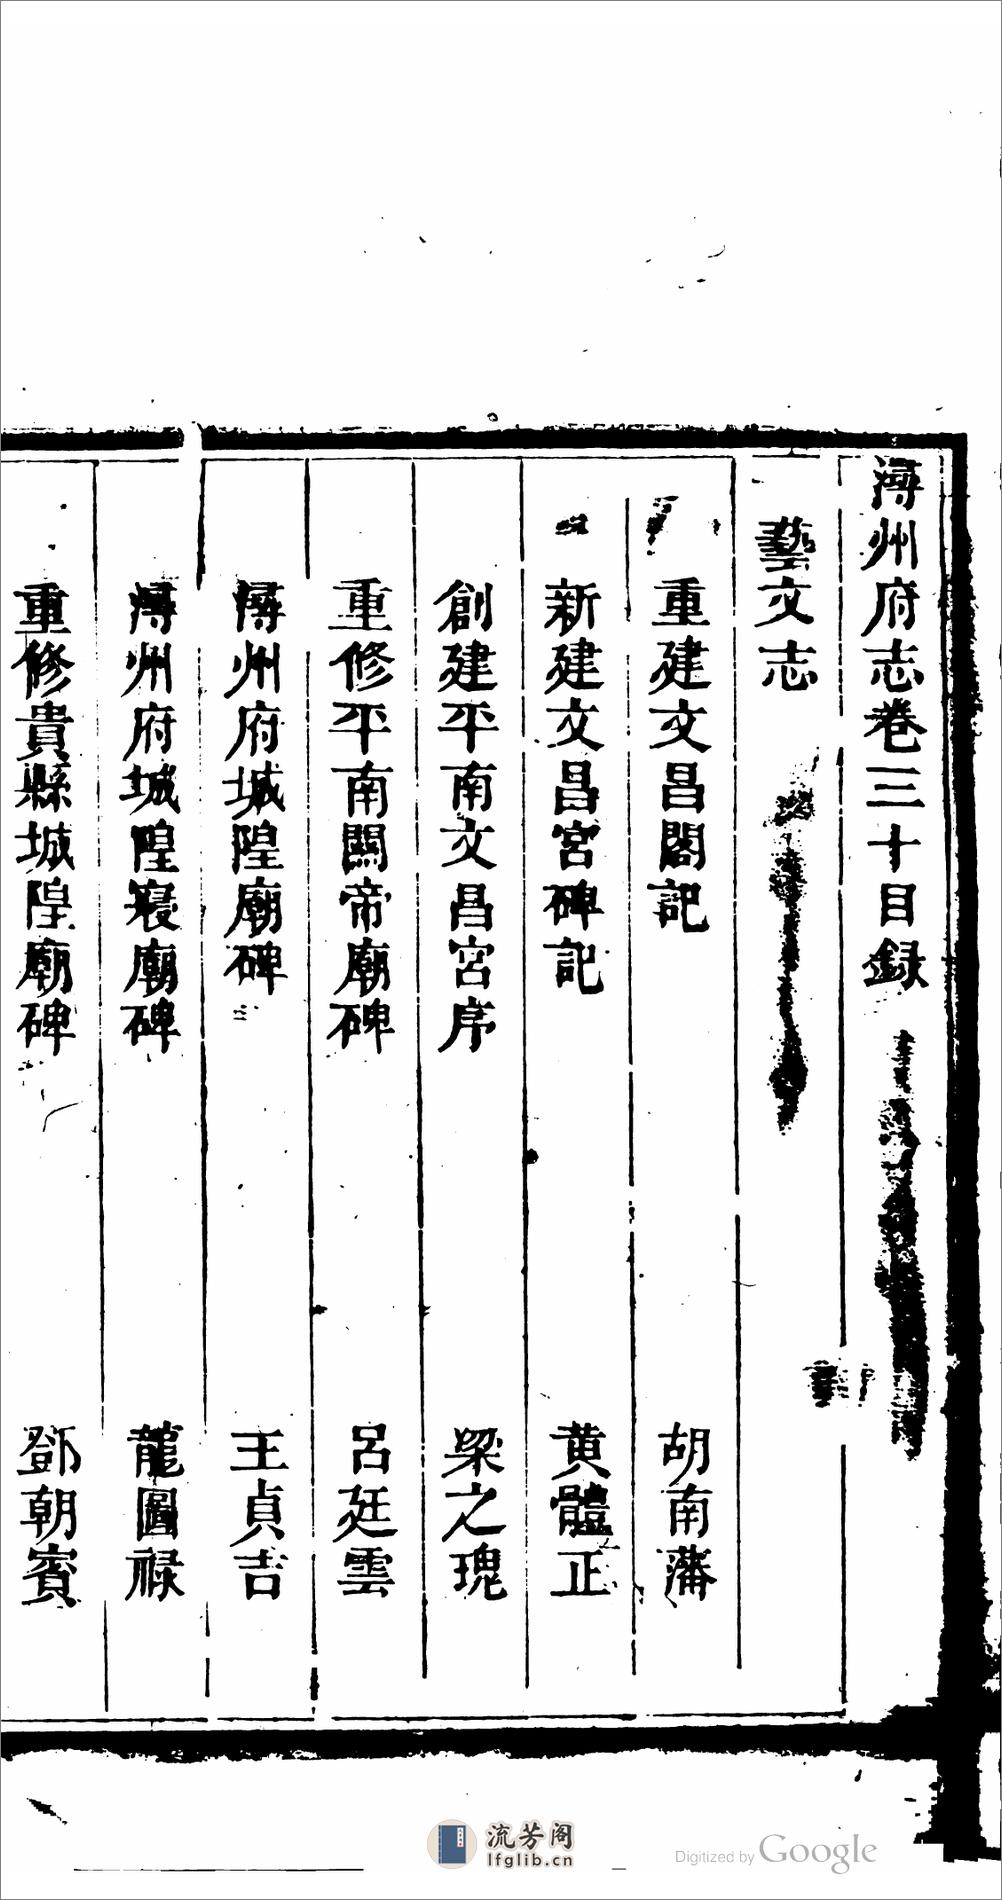 潯州府志卷三十目録
藝文志
重建文昌閣記 胡南藩
新建文昌宮碑記 黄體正
創建平南文昌宮序 梁之瑰
重修平南關帝廟碑 呂廷雲
潯州府城隍廟碑 王貞吉
潯州府城隍寢廟碑 龍圖禄
重修貴縣城隍廟碑 鄧朝賓
流芳阁
lfglib.cn
Digitized by Google